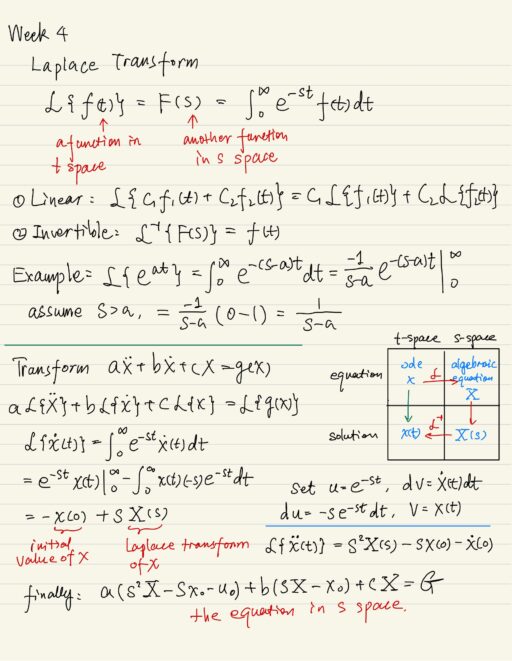 Week 4
Laplace Transform
ℒ{f(t)} = F(s) = ∫₀^∞ e^{-st} f(t) dt
a function in t space
another function in s space
① Linear: ℒ{C₁f₁(t) + C₂f₂(t)} = C₁ℒ{f₁(t)} + C₂ℒ{f₂(t)}
② Invertible: ℒ⁻¹{F(s)} = f(t)
Example: ℒ{e^{at}} = ∫₀^∞ e^{-(s-a)t} dt = -1/(s-a) e^{-(s-a)t} |₀^∞
assume s>a, = -1/(s-a) (0-1) = 1/(s-a)
t-space s-space
equation
ode x ℒ→ algebraic equation X
solution
x(t) ←ℒ⁻¹ X(s)
Transform aẍ + bẋ + cx = g(x)
aℒ{ẍ} + bℒ{ẋ} + cℒ{x} = ℒ{g(x)}
ℒ{ẋ(t)} = ∫₀^∞ e^{-st} ẋ(t) dt
= e^{-st} x(t)|₀^∞ - ∫₀^∞ x(t)(-s)e^{-st} dt
= -x(0) + sX(s)
initial value of x
Laplace transform of x
set u = e^{-st}, dv = ẋ(t)dt
du = -se^{-st} dt, v = x(t)
ℒ{ẍ(t)} = s²X(s) - sx(0) - ẋ(0)
finally: a(s²X - sx₀ - u₀) + b(sX - x₀) + cX = G
the equation in s space.